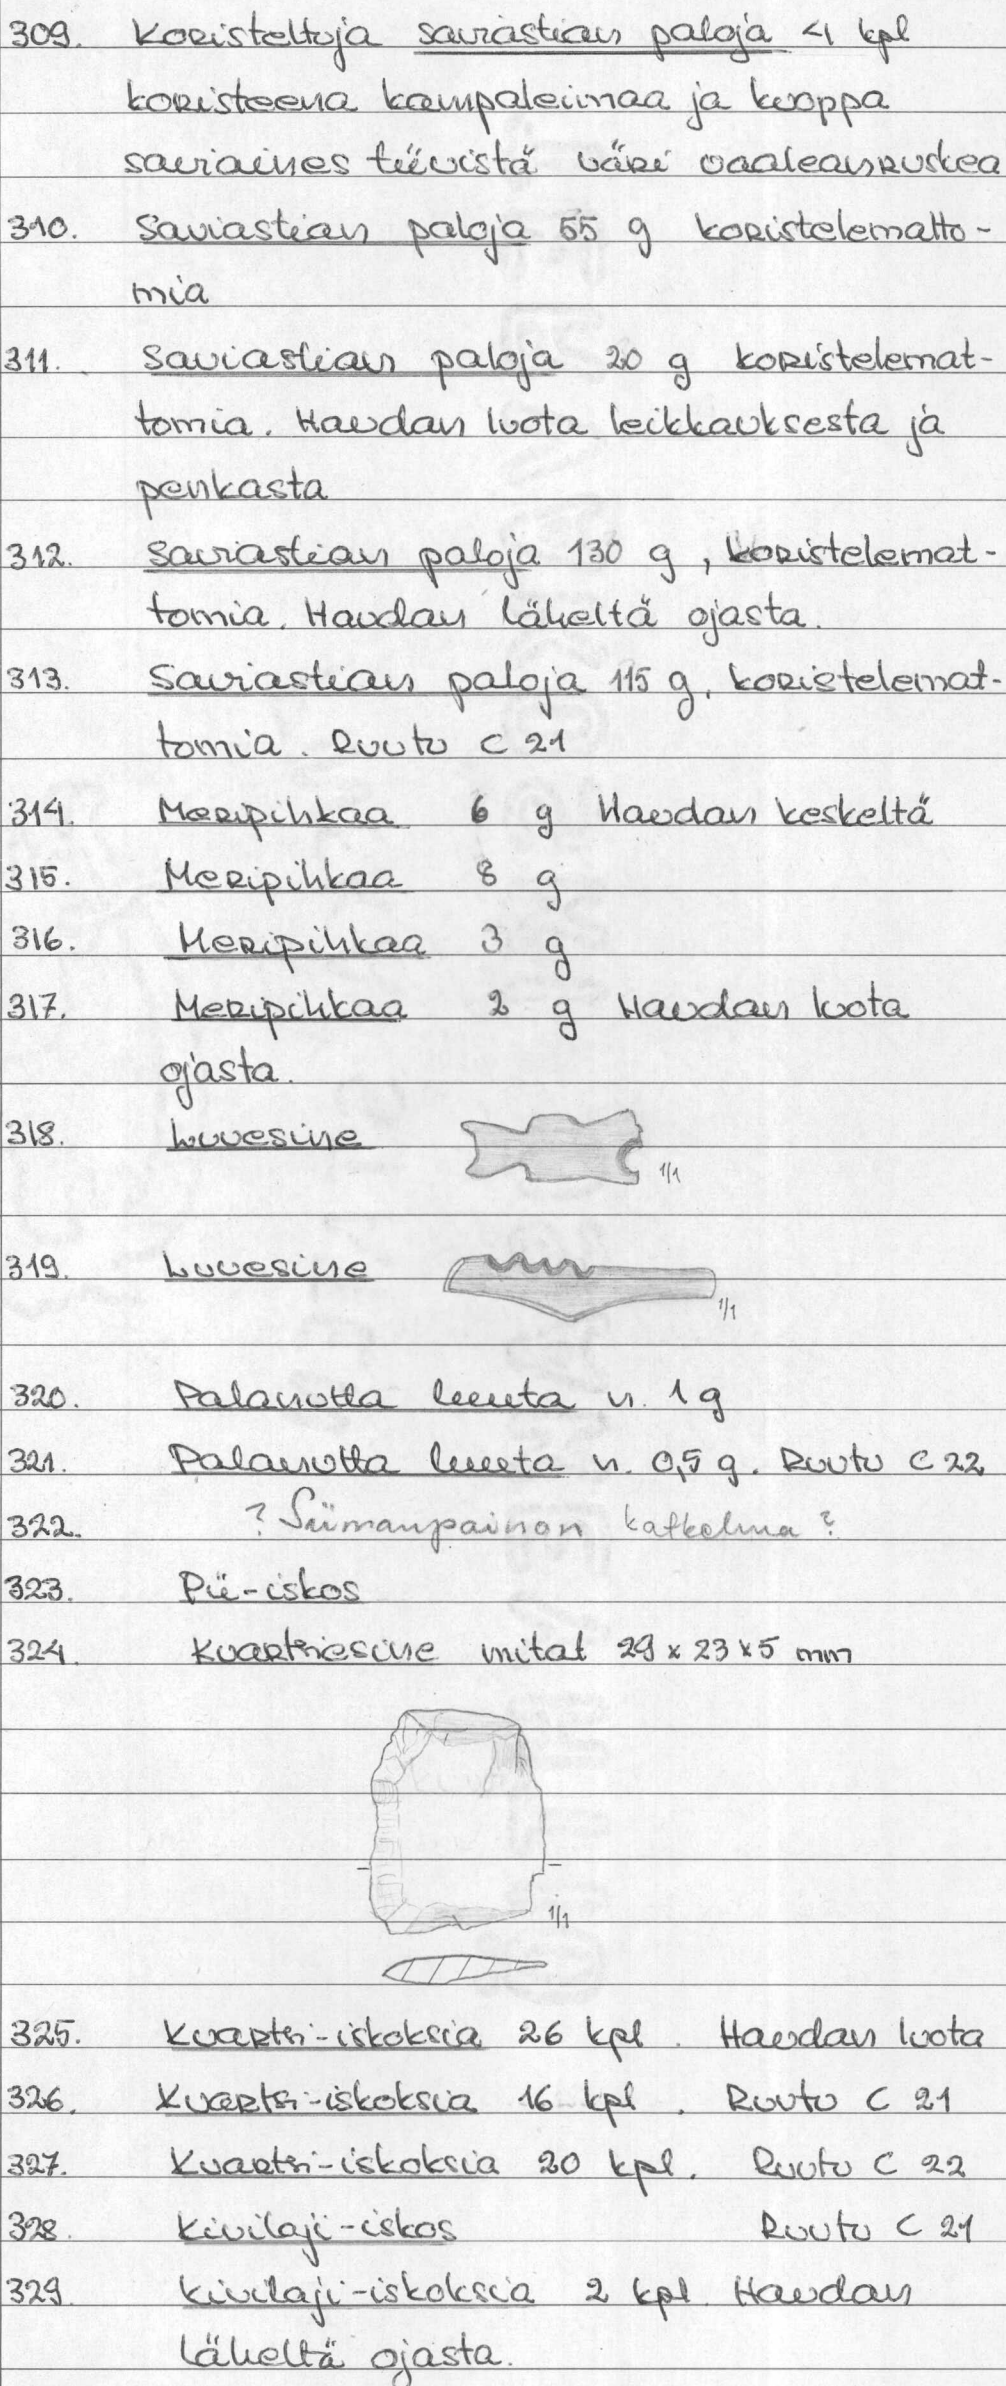 309. Koristeltuja saviastian paloja 4 kpl
koristeena kampaleimaa ja kuoppa
saviaines tiivistä väri vaaleanruskea
310. Saviastian paloja 55 g koristelematto-
mia
311. Saviastian paloja 20 g koristelemat-
tomia. Haudan luota leikkauksesta ja
penkasta
312. Saviastian paloja 130 g, koristelemat-
tomia. Haudan läheltä ojasta.
313. Saviastian paloja 115 g, koristelemat-
tomia. Ruutu C 21
314. Meripihkaa 6 g Haudan keskeltä
315. Meripihkaa 8 g
316. Meripihkaa 3 g
317. Meripihkaa 2 g Haudan luota
ojasta.
318. Luuesine
1/1
319. Luuesine
1/1
320. Palanutta luuta n. 1 g
321. Palanutta luuta n. 0,5 g. Ruutu C 22
322. ? Siimanpainon katkelma ?
323. Pii-iskos
324. Kvartsiesine mitat 29 x 23 x 5 mm
1/1
325. Kvartsi-iskoksia 26 kpl. Haudan luota
326. Kvartsi-iskoksia 16 kpl. Ruutu C 21
327. Kvartsi-iskoksia 20 kpl. Ruutu C 22
328. Kivilaji-iskos Ruutu C 21
329. Kivilaji-iskoksia 2 kpl Haudan
läheltä ojasta.